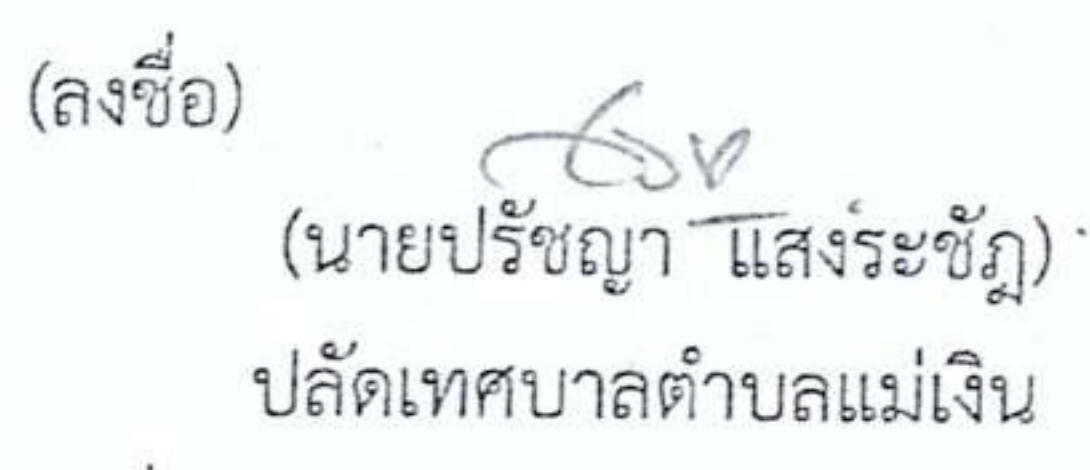 (ลงชื่อ)
(นายปรัชญา แสงระชัฏ)
ปลัดเทศบาลตำบลแม่เงิน